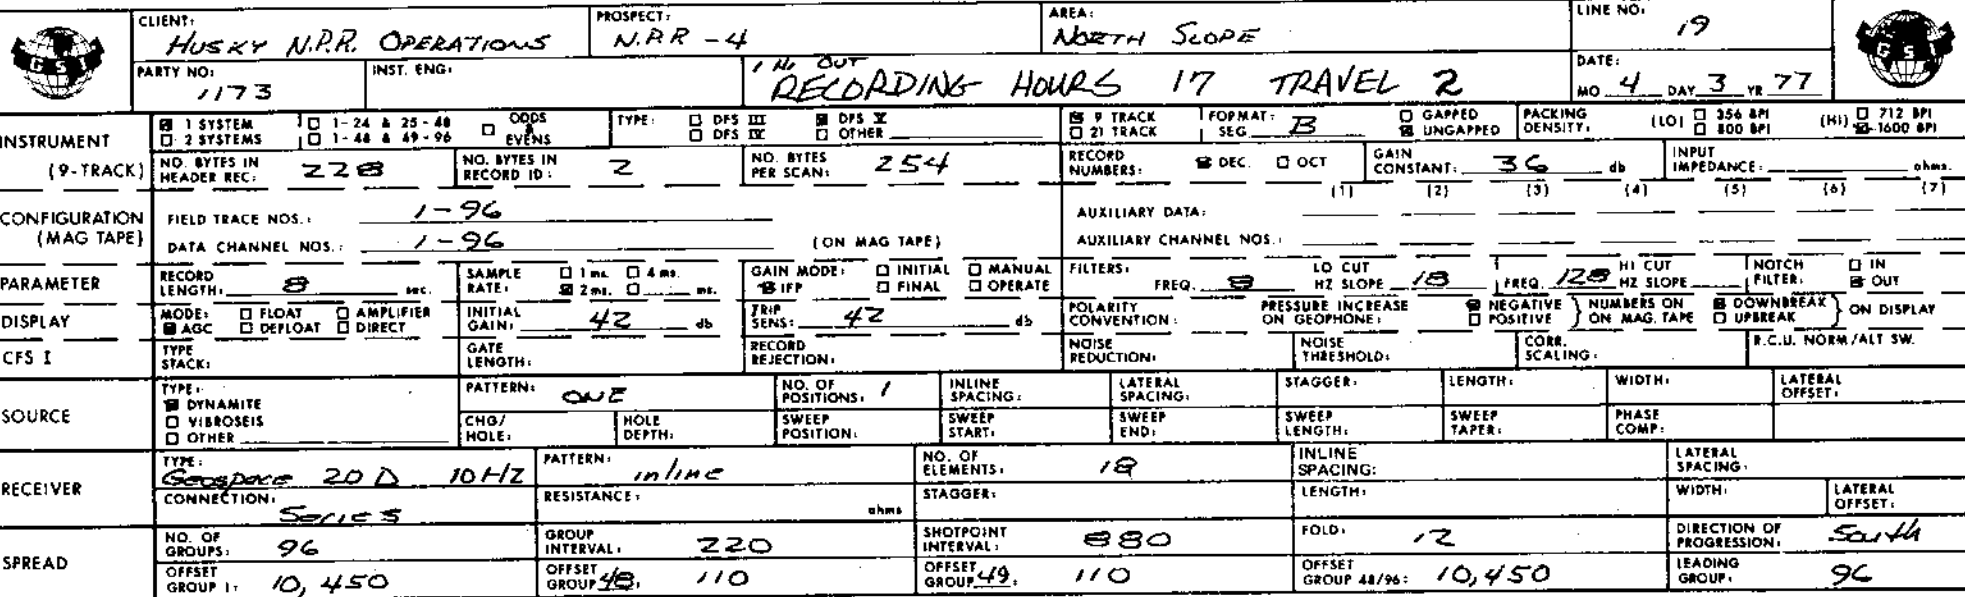 CLIENT: HUSKY N.P.R. OPERATIONS PROSPECT: N.P.R - 4 AREA: NORTH SLOPE LINE NO: 19
GSI GSI
PARTY NO: 1173 INST. ENG: 1 Hr OUT RECORDING HOURS 17 TRAVEL 2 DATE: MO 4 DAY 3 YR 77
INSTRUMENT (9-TRACK) 1 SYSTEM 1-24 & 25-48 ODDS & EVENS TYPE: DFS III DFS V 9 TRACK FORMAT: SEG B GAPPED PACKING DENSITY: (LO) 356 BPI (HI) 712 BPI
2 SYSTEMS 1-48 & 49-96 DFS IV OTHER 21 TRACK UNGAPPED 800 BPI 1600 BPI
NO. BYTES IN HEADER REC: 228 NO. BYTES IN RECORD ID: 2 NO. BYTES PER SCAN: 254 RECORD NUMBERS: DEC. OCT GAIN CONSTANT: 36 db INPUT IMPEDANCE: ohms.
(1) (2) (3) (4) (5) (6) (7)
CONFIGURATION (MAG TAPE) FIELD TRACE NOS.: 1-96 AUXILIARY DATA:
DATA CHANNEL NOS.: 1-96 (ON MAG TAPE) AUXILIARY CHANNEL NOS.:
PARAMETER RECORD LENGTH: 8 sec. SAMPLE RATE: 1 ms. 4 ms. 2 ms. ms. GAIN MODE: INITIAL MANUAL IFP FINAL OPERATE FILTERS: FREQ. 8 LO CUT HZ SLOPE 18 FREQ. 128 HI CUT HZ SLOPE NOTCH FILTER: IN OUT
DISPLAY MODE: FLOAT AMPLIFIER AGC DEFLOAT DIRECT INITIAL GAIN: 42 db TRIP SENS: 42 db POLARITY CONVENTION: PRESSURE INCREASE ON GEOPHONE: NEGATIVE POSITIVE } NUMBERS ON ON MAG. TAPE DOWNBREAK UPBREAK } ON DISPLAY
CFS I TYPE STACK: GATE LENGTH: RECORD REJECTION: NOISE REDUCTION: NOISE THRESHOLD: CORR. SCALING: R.C.U. NORM/ALT SW.
SOURCE TYPE: DYNAMITE VIBROSEIS OTHER PATTERN: ONE NO. OF POSITIONS: 1 INLINE SPACING: LATERAL SPACING: STAGGER: LENGTH: WIDTH: LATERAL OFFSET:
CHG/HOLE: HOLE DEPTH: SWEEP POSITION: SWEEP START: SWEEP END: SWEEP LENGTH: SWEEP TAPER: PHASE COMP:
RECEIVER TYPE: Geospace 20 D 10 HZ PATTERN: inline NO. OF ELEMENTS: 18 INLINE SPACING: LATERAL SPACING:
CONNECTION: Series RESISTANCE: ohms STAGGER: LENGTH: WIDTH: LATERAL OFFSET:
SPREAD NO. OF GROUPS: 96 GROUP INTERVAL: 220 SHOTPOINT INTERVAL: 880 FOLD: 12 DIRECTION OF PROGRESSION: South
OFFSET GROUP 1: 10,450 OFFSET GROUP 48: 110 OFFSET GROUP 49: 110 OFFSET GROUP 48/96: 10,450 LEADING GROUP: 96